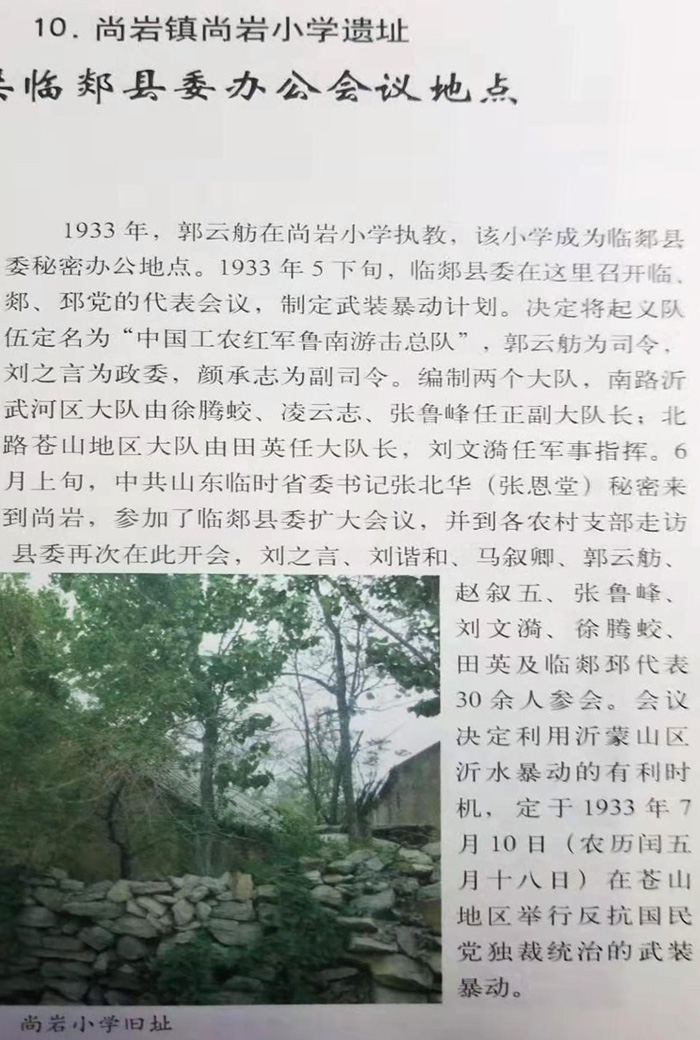 10. 尚岩镇尚岩小学遗址
临郯县委办公会议地点
1933 年，郭云舫在尚岩小学执教，该小学成为临郯县
委秘密办公地点。1933 年 5 下旬，临郯县委在这里召开临、
郯、邳党的代表会议，制定武装暴动计划。决定将起义队
伍定名为“中国工农红军鲁南游击总队”，郭云舫为司令，
刘之言为政委，颜承志为副司令。编制两个大队，南路沂
武河区大队由徐腾蛟、凌云志、张鲁峰任正副大队长；北
路苍山地区大队由田英任大队长，刘文漪任军事指挥。6
月上旬，中共山东临时省委书记张北华（张恩堂）秘密来
到尚岩，参加了临郯县委扩大会议，并到各农村支部走访
县委再次在此开会，刘之言、刘谐和、马叙卿、郭云舫、
赵叙五、张鲁峰、
刘文漪、徐腾蛟、
田英及临郯邳代表
30 余人参会。会议
决定利用沂蒙山区
沂水暴动的有利时
机，定于 1933 年 7
月 10 日（农历闰五
月十八日）在苍山
地区举行反抗国民
党独裁统治的武装
暴动。
尚岩小学旧址